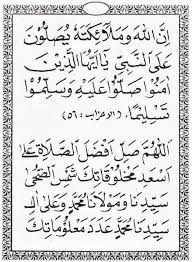 اِنَّ اللهَ وَمَلَآئِكَتَهُ يُصَلُّوْنَ
عَلَى النَّبِيِّ يَآاَيُّهَا الَّذِيْنَ
اٰمَنُوْا صَلُّوْا عَلَيْهِ وَسَلِّمُوْا
تَسْلِيْمًا. (الاحزاب: ٥٦)
اَللّٰهُمَّ صَلِّ اَفْضَلَ الصَّلَاةِ عَلَى
اَسْعَدِ مَخْلُوْقَاتِكَ شَمْسِ الضُّحٰى
سَيِّدِنَا وَمَوْلَانَا مُحَمَّدٍ وَعَلَى اٰلِ
سَيِّدِنَا مُحَمَّدٍ عَدَدَ مَعْلُوْمَاتِكَ